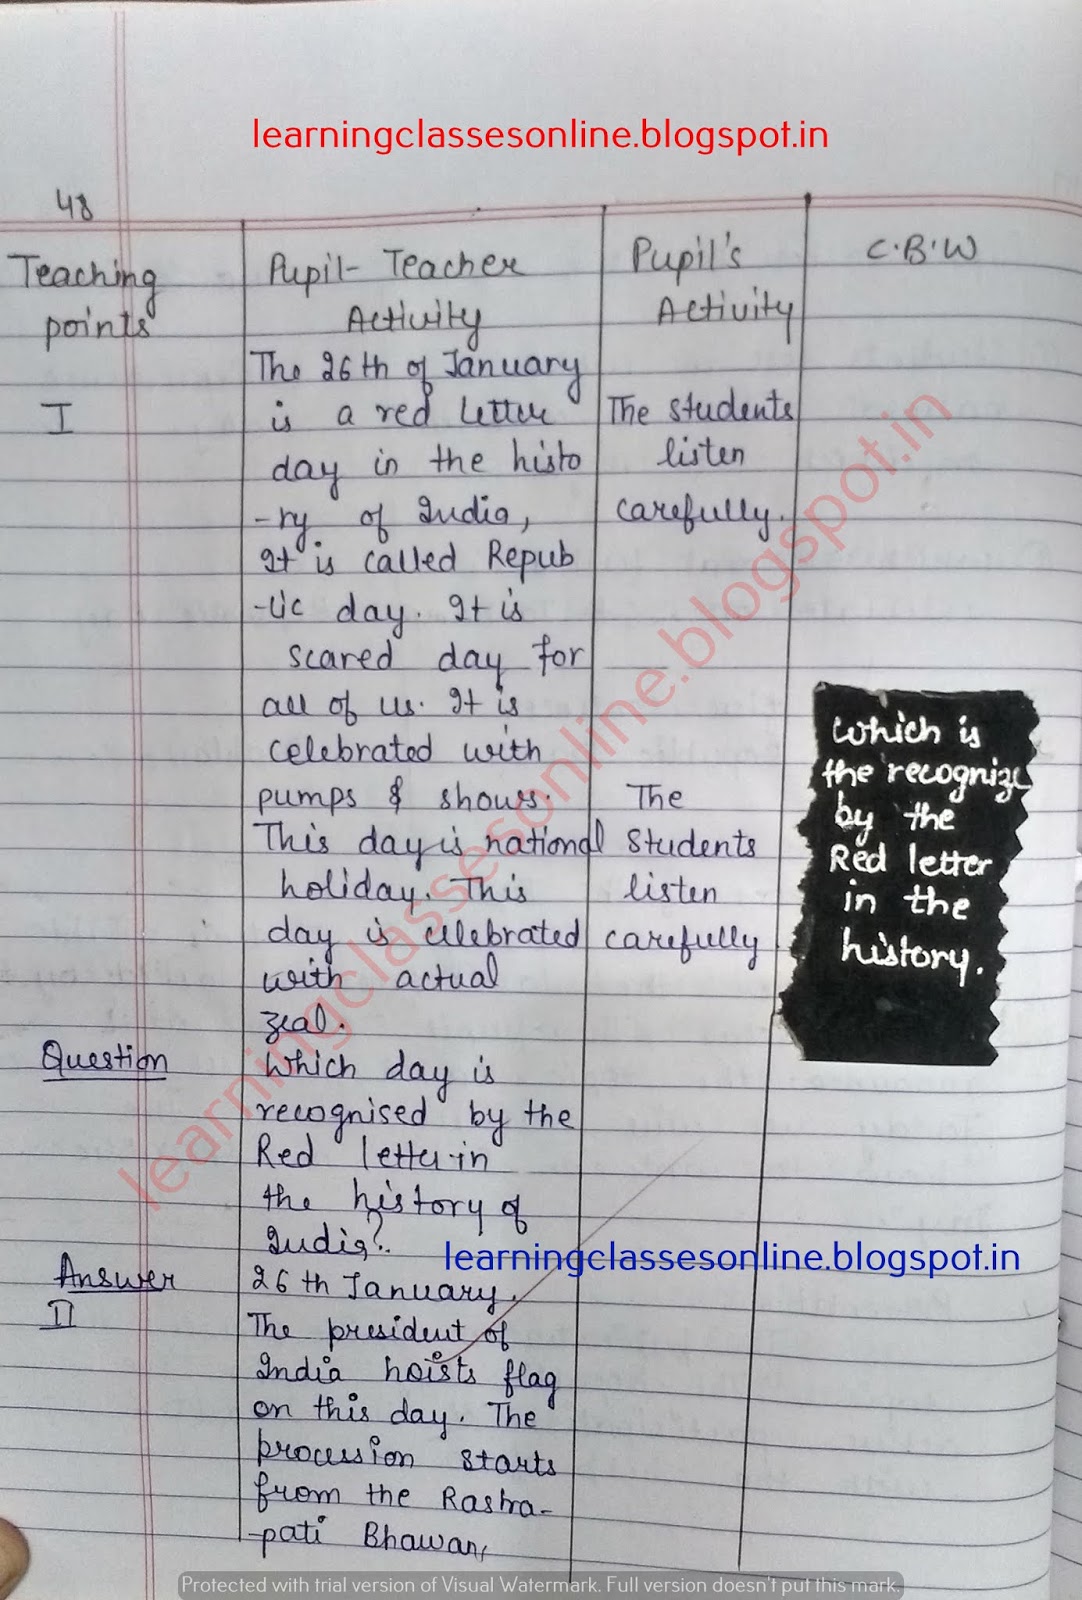 learningclassesonline.blogspot.in
48
Teaching points
Pupil- Teacher Activity
Pupil's Activity
C.B.W
I
The 26th of January
is a red letter
day in the histo
-ry of India,
It is called Repub
-lic day. It is
scared day for
all of us. It is
celebrated with
pumps & shows.
This day is national
holiday. This
day is celebrated
with actual
zeal.
The students
listen
carefully.
The
students
listen
carefully
which is
the recognize
by the
Red letter
in the
history.
Question
Which day is
recognised by the
Red letter in
the history of
India?
Answer
26th January.
II
The president of
India hoists flag
on this day. The
procession starts
from the Rashra-
-pati Bhawan,
learningclassesonline.blogspot.in
learningclassesonline.blogspot.in
Protected with trial version of Visual Watermark. Full version doesn't put this mark.